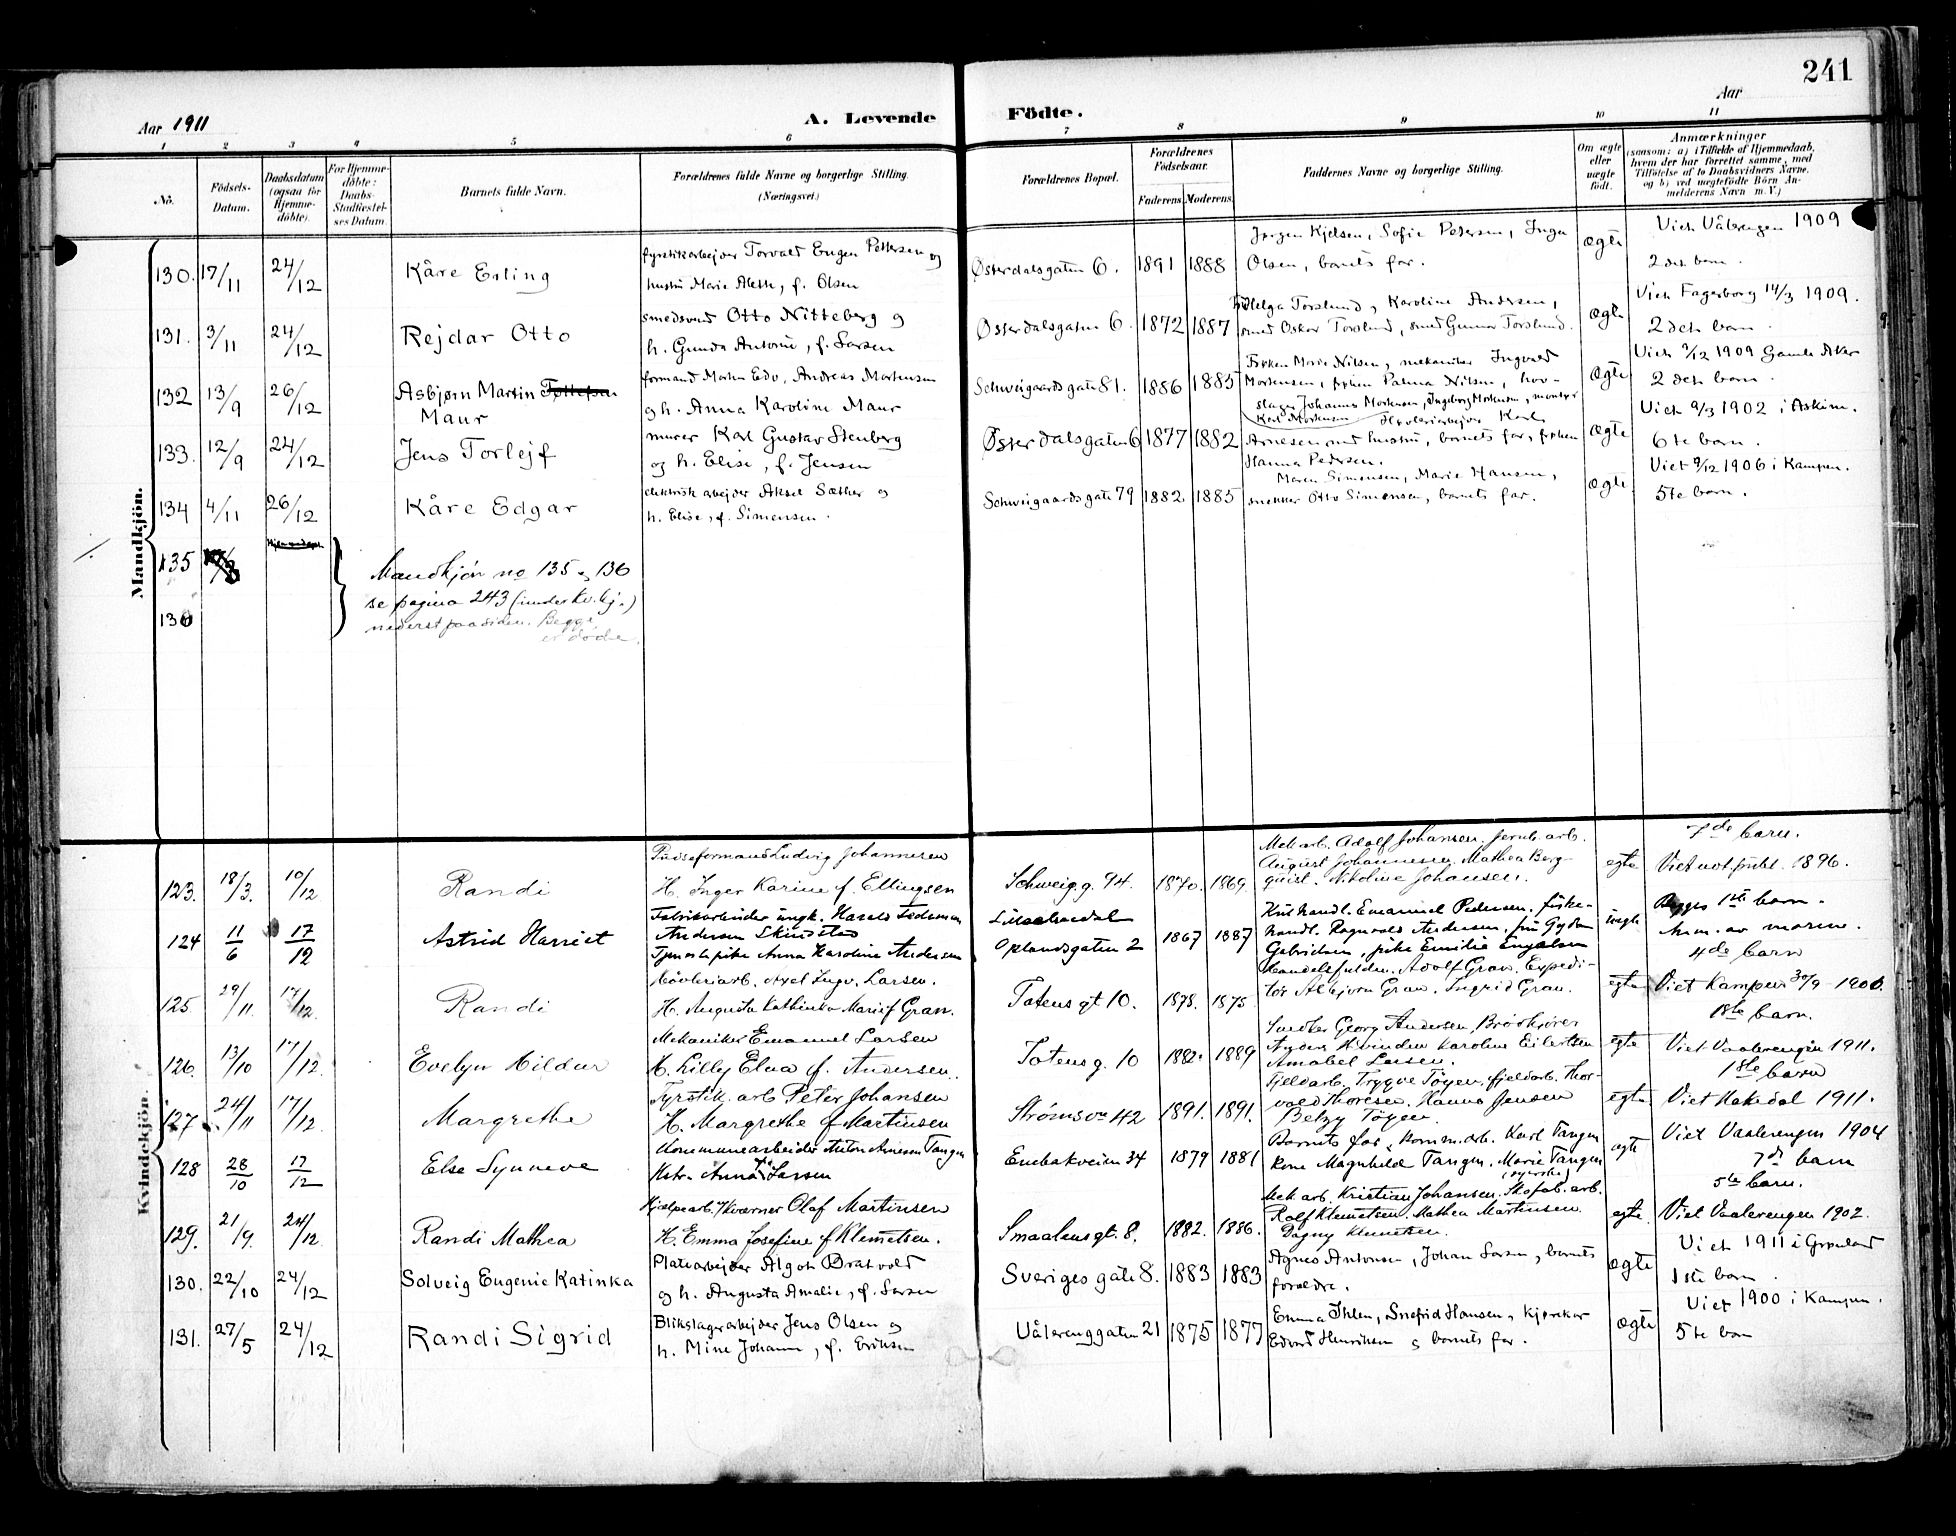 241
Aar 1911
A. Levende Födte.
Aar
1 2 3 4 5 6 7 8 9 10 11
No.
Födsels-Datum.
Daabsdatum (ogsaa for Hjemmedöbte).
For Hjemmedöbte: Daabs-Stadfæstelses Datum
Barnets fulde Navn.
Forældrenes fulde Navne og borgerlige Stilling. (Næringsvei.)
Forældrenes Bopæl.
Forældrenes Födselsaar.
Faderens Moderens
Faddernes Navne og borgerlige Stilling.
Om ægte eller uægte födt.
Anmærkninger
(saasom: a) i Tilfælde af Hjemmedaab,
hvem der har forrettet samme, med
Tilföielse af to Daabsvidners Navne,
og b) ved uegtefödte Börn Anmelderens Navn m. V.)
Mandkjön.
130. 17/11 24/12 Kåre Erling
fyrstikarbejder Torvald Eugen Pettersen og
hustru Marie Alethe, f. Olsen
Østerdalsgaten 6. 1891 1888
Jørgen Kjelsen, Sofie Petersen, Inga
Olsen, barnets far.
ægte
Viet Vålerengen 1909
2det barn.
131. 3/11 24/12 Rejdar Otto
smedsvend Otto Nitteberg og
h. Gunda Antonie, f. Larsen
Østerdalsgaten 6. 1872 1887
Helga Torslund, Karoline Andersen,
smed Oskar Torslund, smed Gunnar Torslund.
ægte
Viet Fagerborg 14/3 1909.
2det barn.
132 13/9 26/12 Asbjørn Martin
Maur
formand Morten Edv. Andreas Mortensen
og h. Anna Karoline Maur
Schweigaards gate 81. 1886 1885
Frøken Marie Nilsen, mekaniker Ingvald
Mortensen, frøken Palma Nilsen, hov-
slager Johannes Mortensen, Ingeborg Mortensen, montør
Karl Mortensen
ægte
Viet 2/12 1909 Gamle Aker
2det barn.
133. 12/9 24/12 Jens Torlejf
murer Karl Gustav Stenberg
og h. Elise, f. Jensen
Østerdalsgaten 6 1877 1882
Høvleriarbejder Karl
Arnesen med hustru, barnets far, frøken
Hanna Pedersen.
ægte
Viet 9/3 1902 i Askim.
6te barn.
134 4/11 26/12 Kåre Edgar
elektrisk arbejder Aksel Sæther og
h. Elise, f. Simensen.
Schweigaardsgate 79 1882. 1885
Maren Simensen, Marie Hansen,
snekker Otto Simensen, barnets far.
ægte
Viet 9/12 1906 i Kampen.
5te barn.
135
136
Mandkjön no 135 og 136
se pagina 243 (under Kv. kj.)
nederst paa siden. Begge
er døde.
Kvindekjön.
123. 18/3. 10/12 Randi
Pudseformand Ludvig Johannesen
H. Inger Karine f. Ellingsen
Schweig.g. 94. 1870. 1869.
Mek arb. Adolf Johansen, Jernb. arb.
August Johannesen, Mathea Berg-
quist. Nikoline Johansen.
egte
7de barn.
Viet not. publ. 1896.
124 11/6 17/12 Astrid Harriet
Fabrikarbeider ungk. Harald Fedorman
Andersen Skindstad
Tjenestepike Anna Karoline Andersen
Lillestrømdal
Oplandsgaten 2 1867 1887
Kulhandl. Emanuel Pedersen, fiske-
handl. Ragnvald Andersen, fru Gyda
Gabrielsen, pike Emilie Engelsen
uegte
Begges 1ste barn.
Anm. av moren.
125 29/11. 17/12. Randi
Høvleriarb. Axel Ingv. Larsen.
H. Augusta Kathinka Marie f Gran.
Totens gt. 10. 1878. 1875
Handelsfuldm. Adolf Gran. Expedi-
tør Asbjørn Gran. Ingrid Gran.
egte
4de barn
Viet Kampen 30/9 1900.
126. 13/10 17/12. Evelyn Hildur
Mekaniker Emanuel Larsen
H. Lilly Elna f. Andersen.
Totens g. 10 1882. 1889
Snedker Georg Andersen, Brødkjører
Anders Hvinden Karoline Eilertsen
Amabel Larsen.
egte
1ste barn.
Viet Vaalerengen 1911.
127 24/11 17/12. Margrethe
Fyrstik. arb Peter Johansen
H. Margrethe f Martinsen
Strømsvn 42 1891. 1891.
Fjeldarb. Trygve Tøyen, fjeldarb. Thor-
vald Thoresen. Hanna Jensen
Betzy Tøyen
egte
1ste barn
Viet Hakedal 1911.
128 28/10 17/12 Else Synneve
Kommunearbeider Anton Arnesen Tangen
Hstr. Anna f. Larsen
Enebakveien 34 1879 1881
Barnets far, komm.arb. Karl Tangen
kone Magnhild Tangen. Marie Tangen
(syerske)
egte
Viet Vaalerengen 1904
7de barn
129. 21/9. 24/12. Randi Mathea
Hjælpearb. v/ Kværner Olaf Martinsen
H. Emma Josefine f Klemetsen.
Smaalensgt. 8. 1882. 1886.
Mek arb. Kristian Johansen. Skofab. arb.
Rolf Klemetsen. Mathea Martinsen
Dagny Klemetsen.
egte
5te barn.
Viet Vaalerengen 1902.
130. 22/10 24/12 Solveig Eugenie Katinka
Platearbejder Algot Bratvold
og h. Augusta Amalie, f. Larsen
Sveriges gate 8. 1883 1883
Agnes Antonsen, Johan Larsen, barnets
forældre.
ægte
Viet 1911 i Grønland
1ste barn.
131. 27/5 24/12 Randi Sigrid
Blikslagerarbejder Jens Olsen og
h. Mine Johanne, f. Eriksen
Vålerenggaten 21 1875 1877
Emma Ihlen, Snefrid Hansen, kjørekar
Edvard Henriksen og barnets far.
ægte
Viet 1900 i Kampen.
5te barn